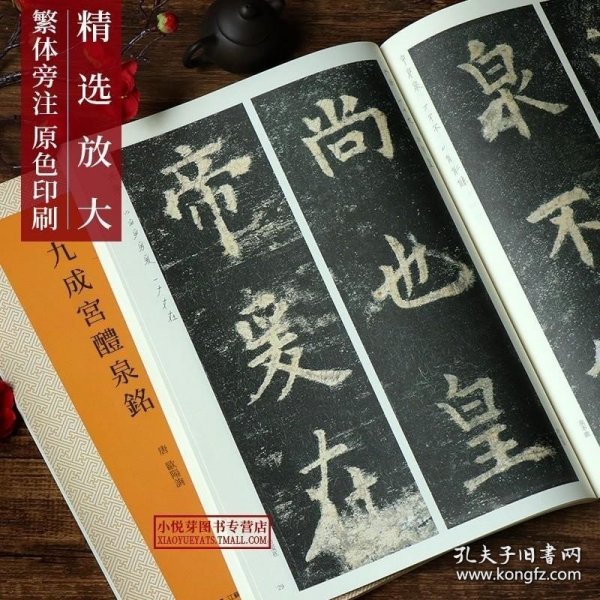 精选放大
繁体旁注 原色印刷
九成宮醴泉銘
唐 歐陽詢
泉
不
尚也皇
帝爰在
29
小悦芽图书专营店
XIAOYUEYATS.TMALL.COM
孔夫子旧书网
www.kongfz.com